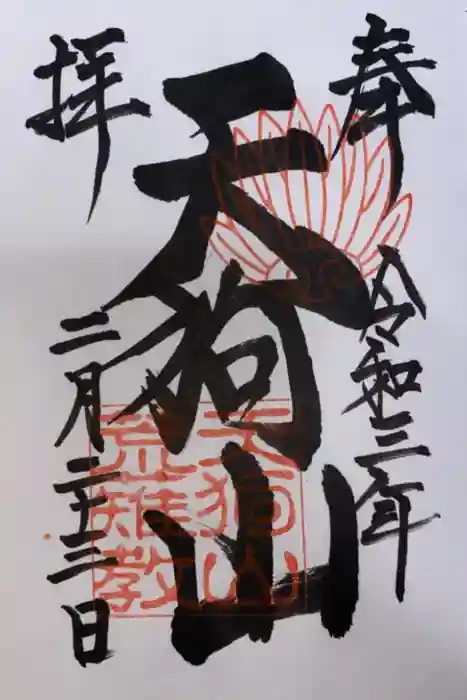 奉
令和三年
天狗山
拝
二月二十三日
天狗山
荒薙教